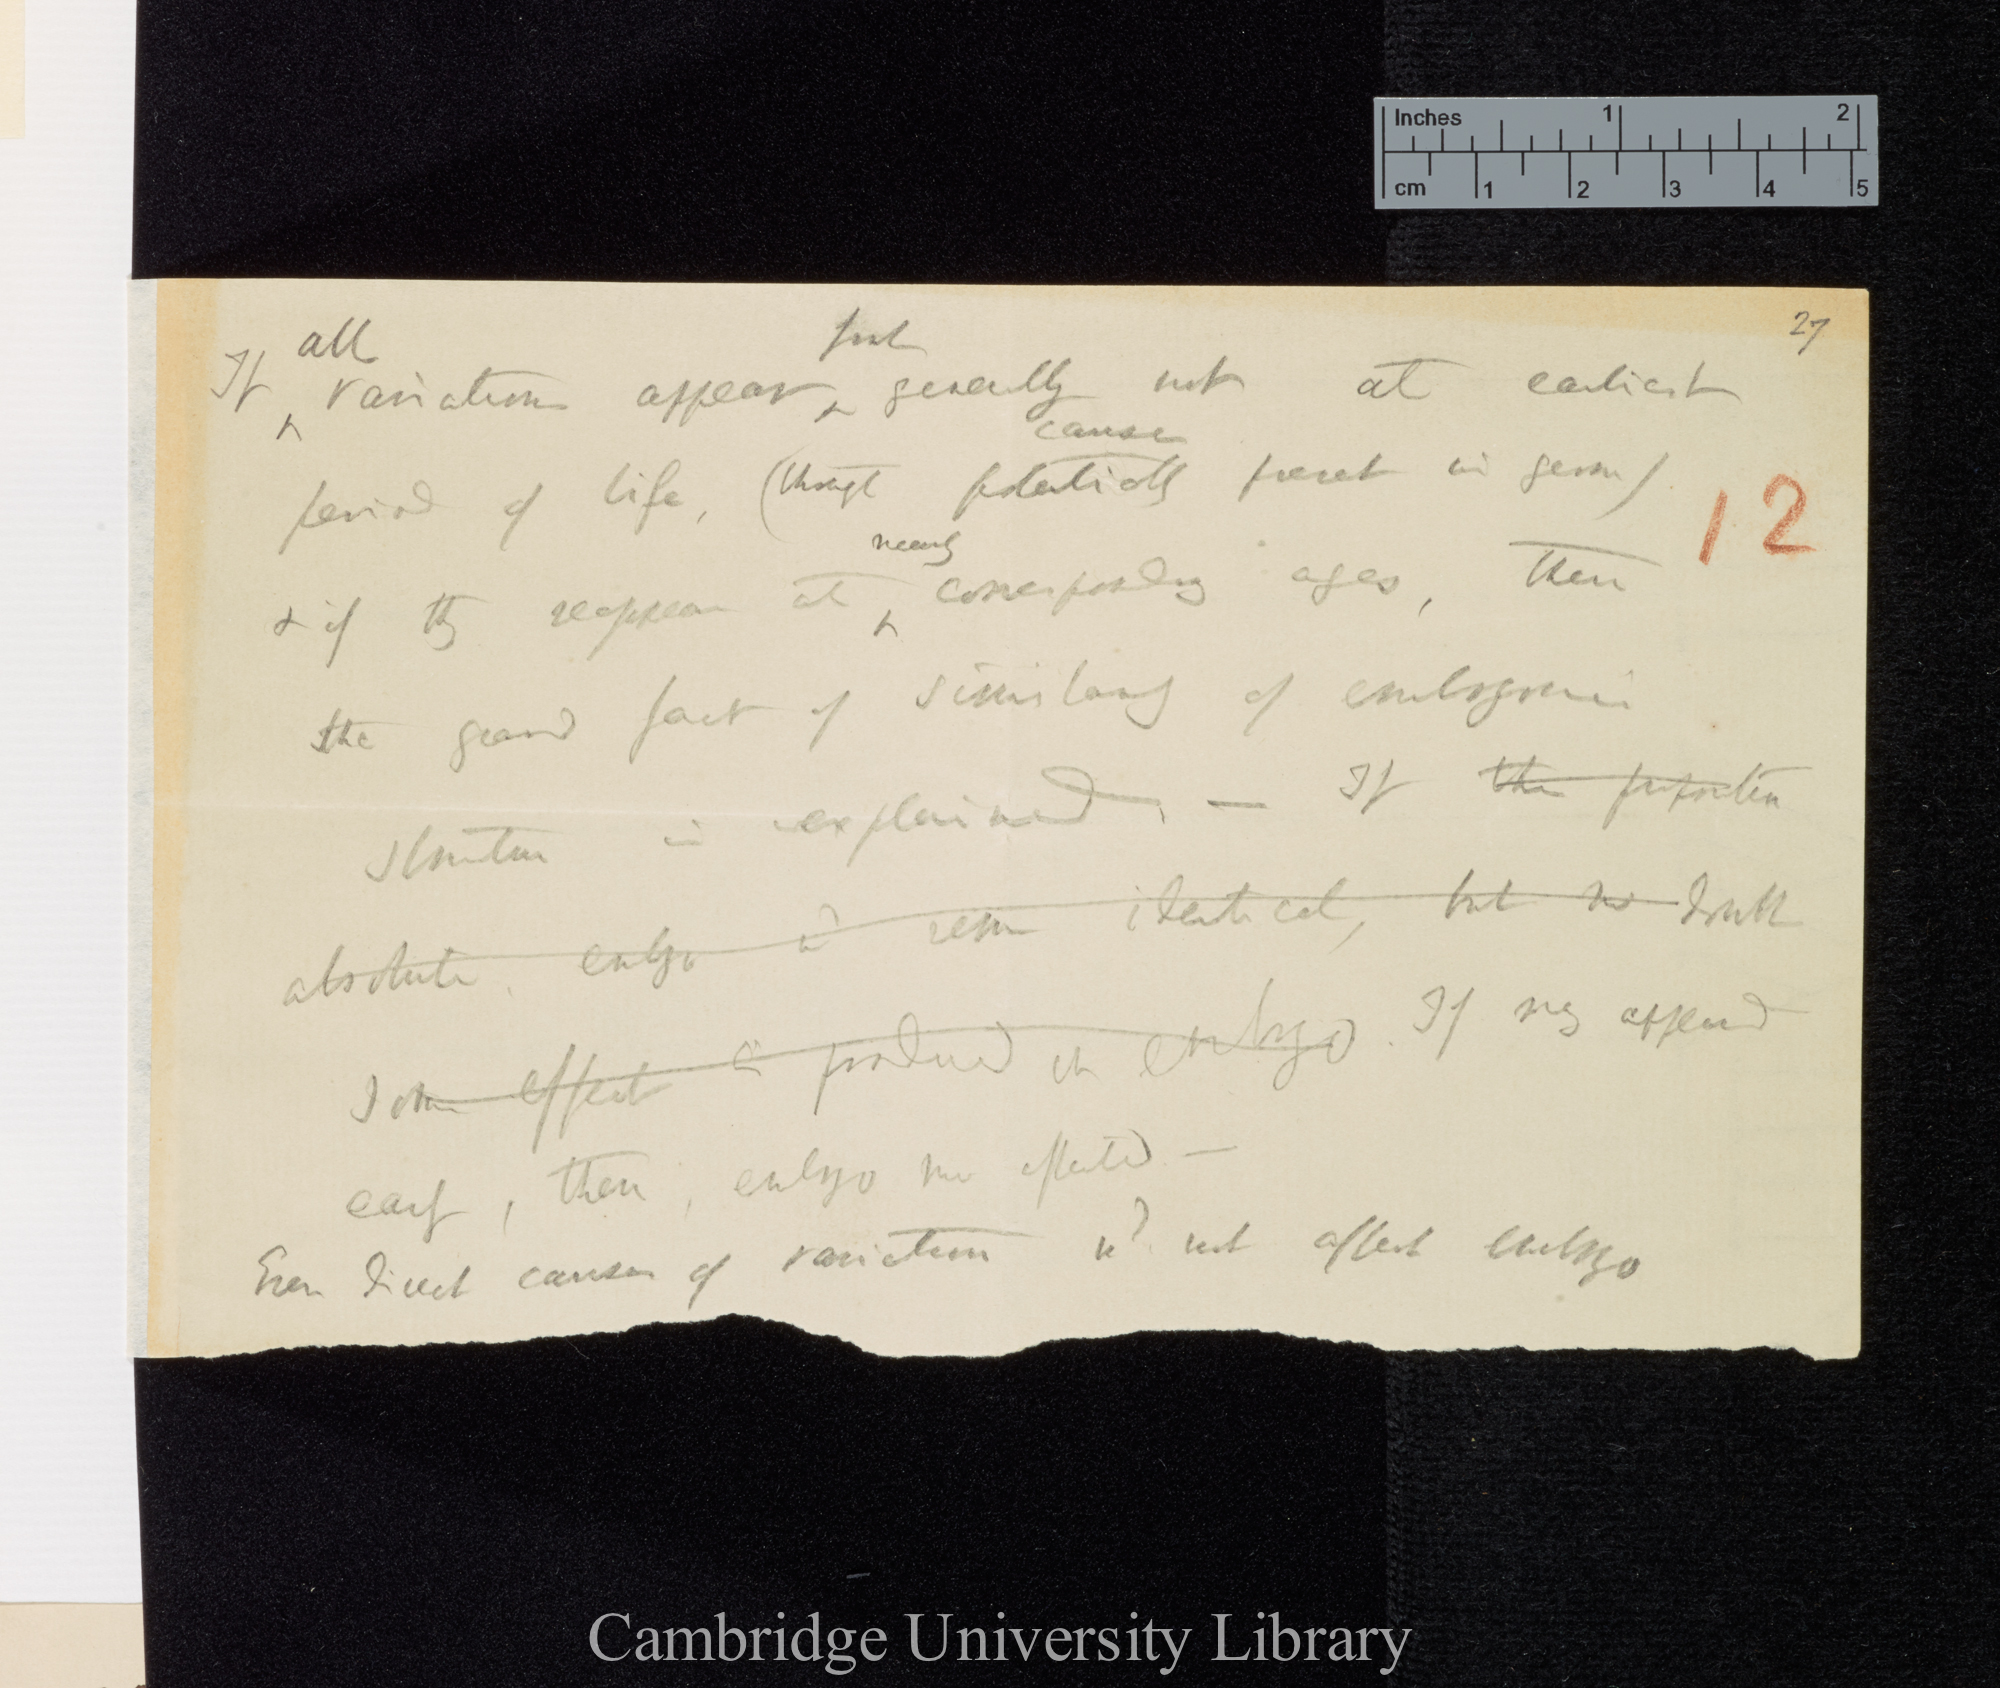 Inches 1 2
cm 1 2 3 4 5
27
all first
If ‸ variations appear ‸ generally not at earliest
cause
period of life, (though potentially present in germ)
12
nearly
& if they reappear at ‸ corresponding ages, then
the grand fact of similarity of embryonic
structure is explained. — If the proposition
absolute. embryo wd remain identical, but no doubt
some effect is produced in embryo. If very appeared
early, then, embryo affected —
Even direct causes of variation wd. not affect embryo
Cambridge University Library